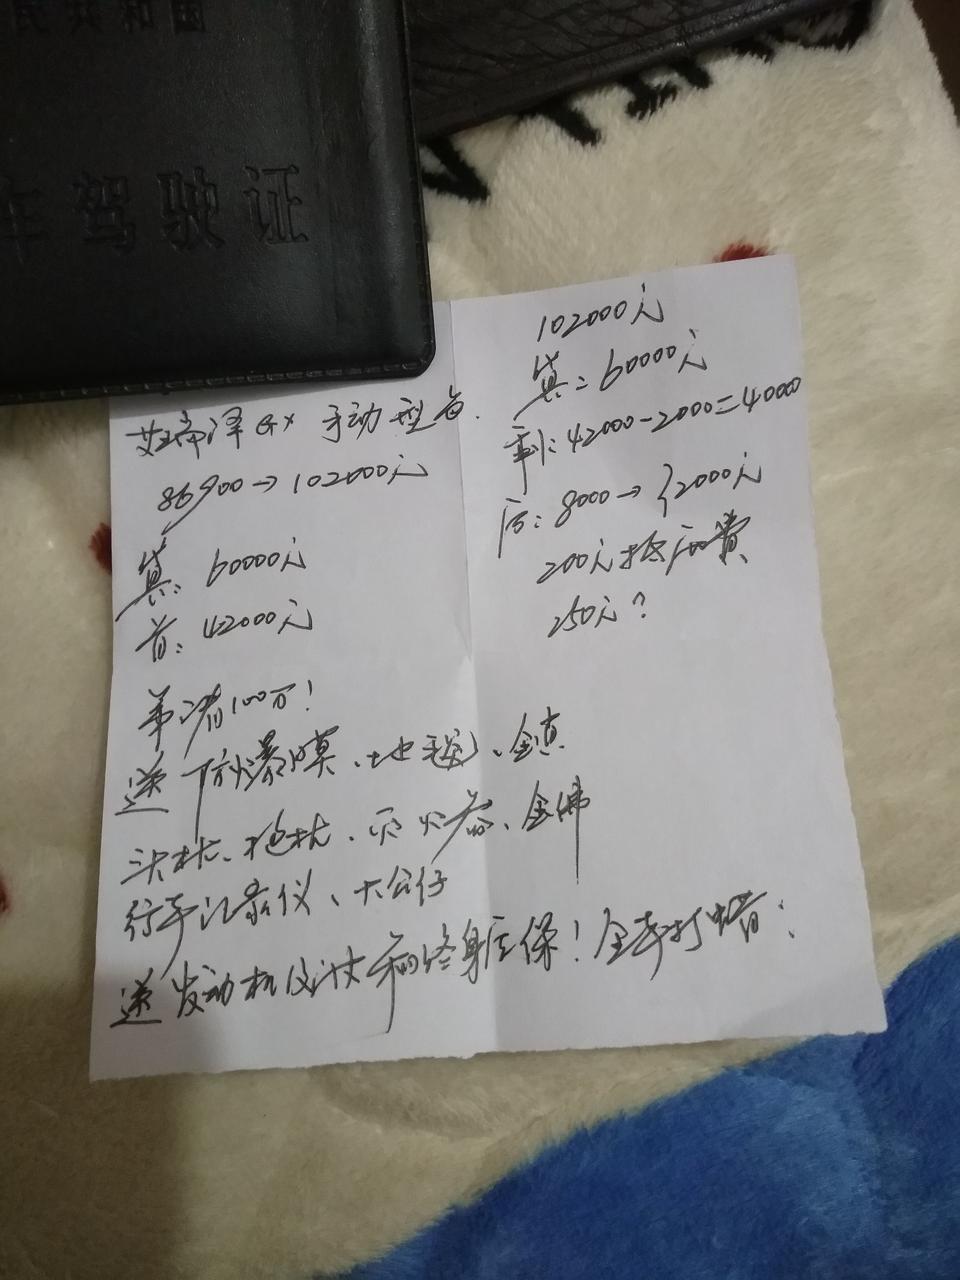 民共和国
车驾驶证
艾瑞泽GX 手动型号.
86900→102000元
贷: 60000元
首: 42000元
第三者100万!
送 防爆膜、地毯、全真
头枕、抱枕、灭火器、金佛
行车记录仪、大公仔
送发动机 终身质保! 全车打蜡:
102000元
贷:60000元
剩:42000-2000=40000
后: 8000→ 2000元
200元 费
250元?